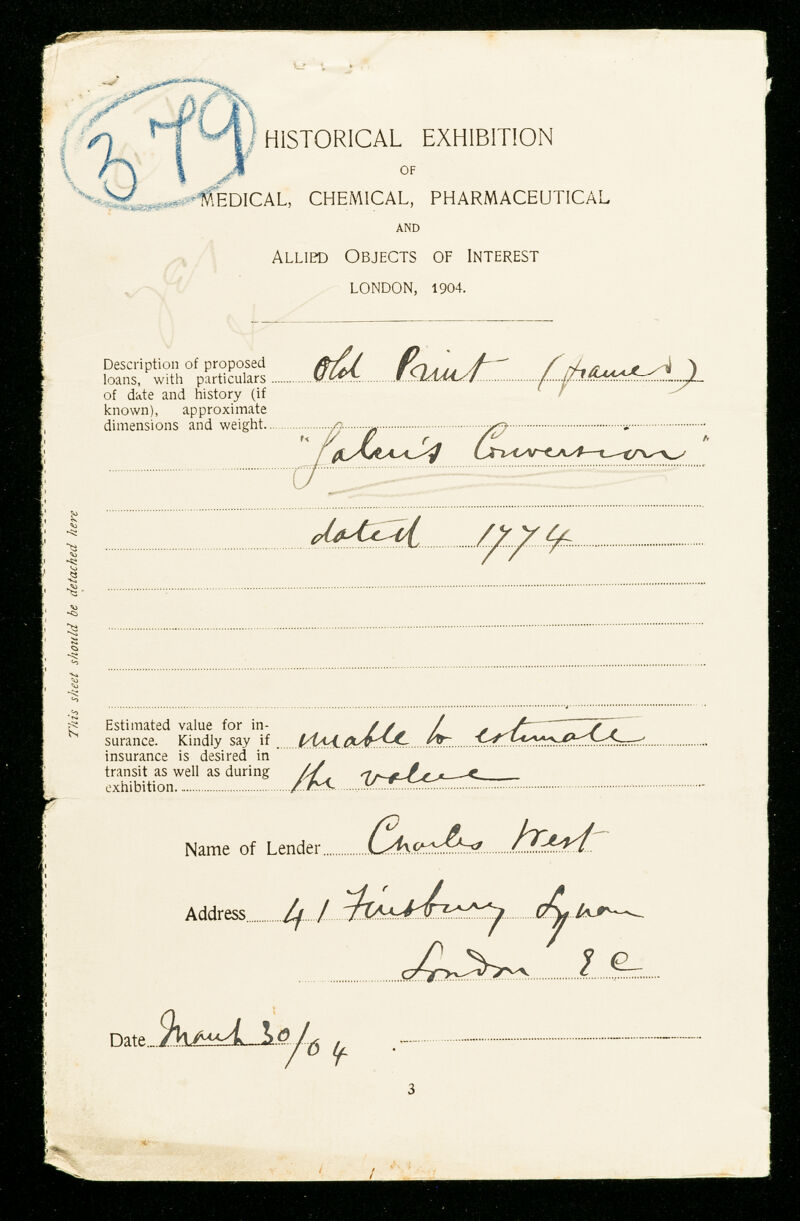 379
HISTORICAL EXHIBITION
OF
MEDICAL, CHEMICAL, PHARMACEUTICAL
AND
ALLIED OBJECTS OF INTEREST
LONDON, 1904.
yes
Description of proposed
loans, with particulars
of date and history (if
known), approximate
dimensions and weight.
Old Print (framed)
"Galen's Conversion"
dated 1774
This sheet should be detached here
Estimated value for in-
surance. Kindly say if
insurance is desired in
transit as well as during
exhibition.
unable to estimate
the value
Name of Lender Charles West
Address 41 Finsbury Square
London E C
Date March 30/04
3